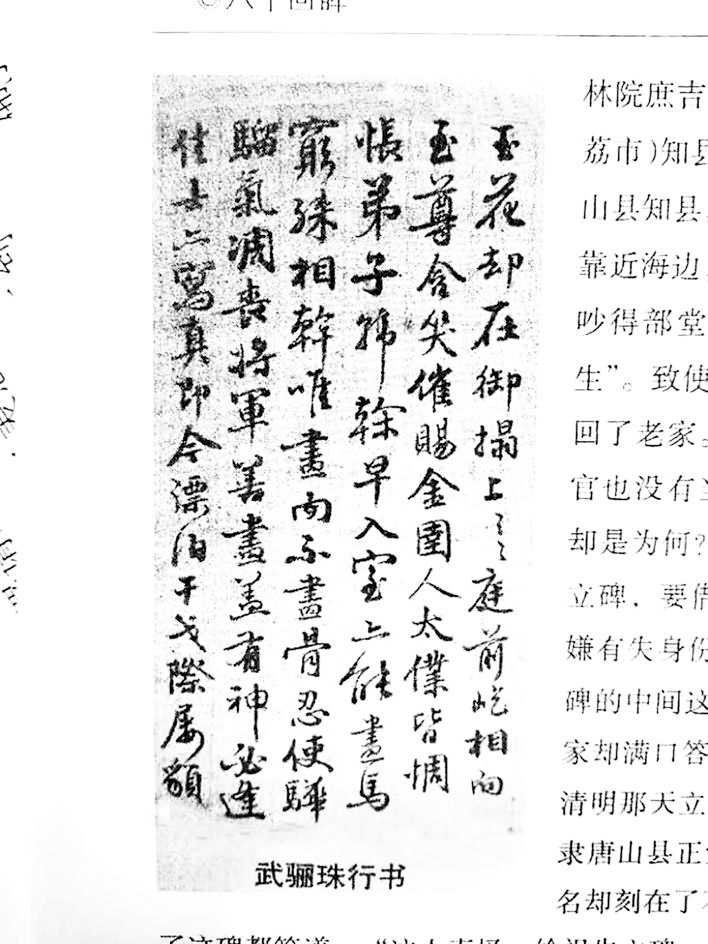 玉花却在御榻上〻〻庭前屹相向
至尊含笑催賜金圉人太僕皆惆
悵弟子韓幹早入室亦能畫馬
窮殊相幹唯畫肉不畫骨忍使驊
騮氣凋喪將軍善畫蓋有神必逢
佳士亦寫真即今漂泊干戈際屢貌
武骊珠行书
林院庶吉
荔市)知县
山县知县
靠近海边,
吵得部堂
生”。致使
回了老家。
官也没有
却是为何?
立碑,要借
嫌有失身份
碑的中间这
家却满口答
清明那天立
隶唐山县正
名却刻在了